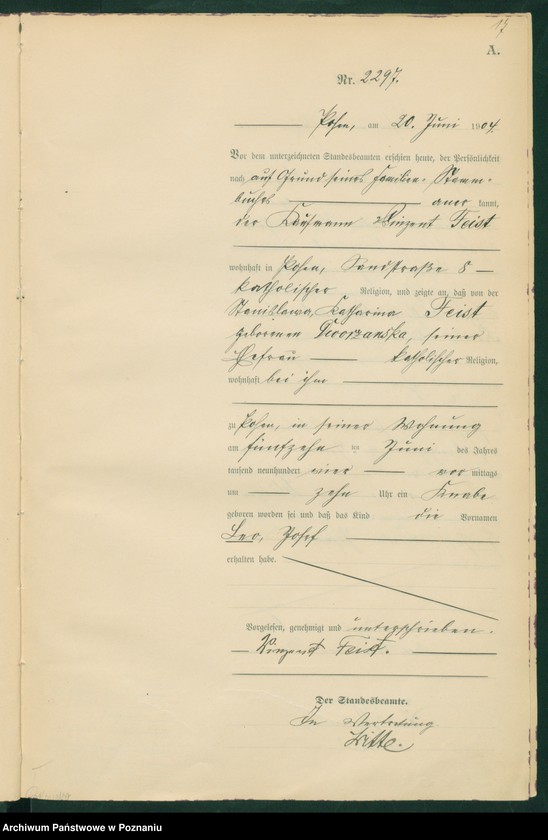 17
A.
Nr. 2297.
Posen, am 20. Juni 1904.
Vor dem unterzeichneten Standesbeamten erschien heute, der Persönlichkeit
nach auf Grund seines Familien-Stamm-
buches anerkannt,
der Kaufmann Vinzent Feist
wohnhaft in Posen, Sandstraße 8
katholischer Religion, und zeigte an, daß von der
Stanislawa, Katharina Feist
geborenen Tworzanska, seiner
Ehefrau katholischer Religion,
wohnhaft bei ihm
zu Posen, in seiner Wohnung
am fünfzehnten Juni des Jahres
tausend neunhundert vier vormittags
um zehn Uhr ein Knabe
geboren worden sei und daß das Kind die Vornamen
Leo, Josef
erhalten habe.
Vorgelesen, genehmigt und unterschrieben.
Vinzent Feist.
Der Standesbeamte.
In Vertretung
Witte.
Archiwum Państwowe w Poznaniu